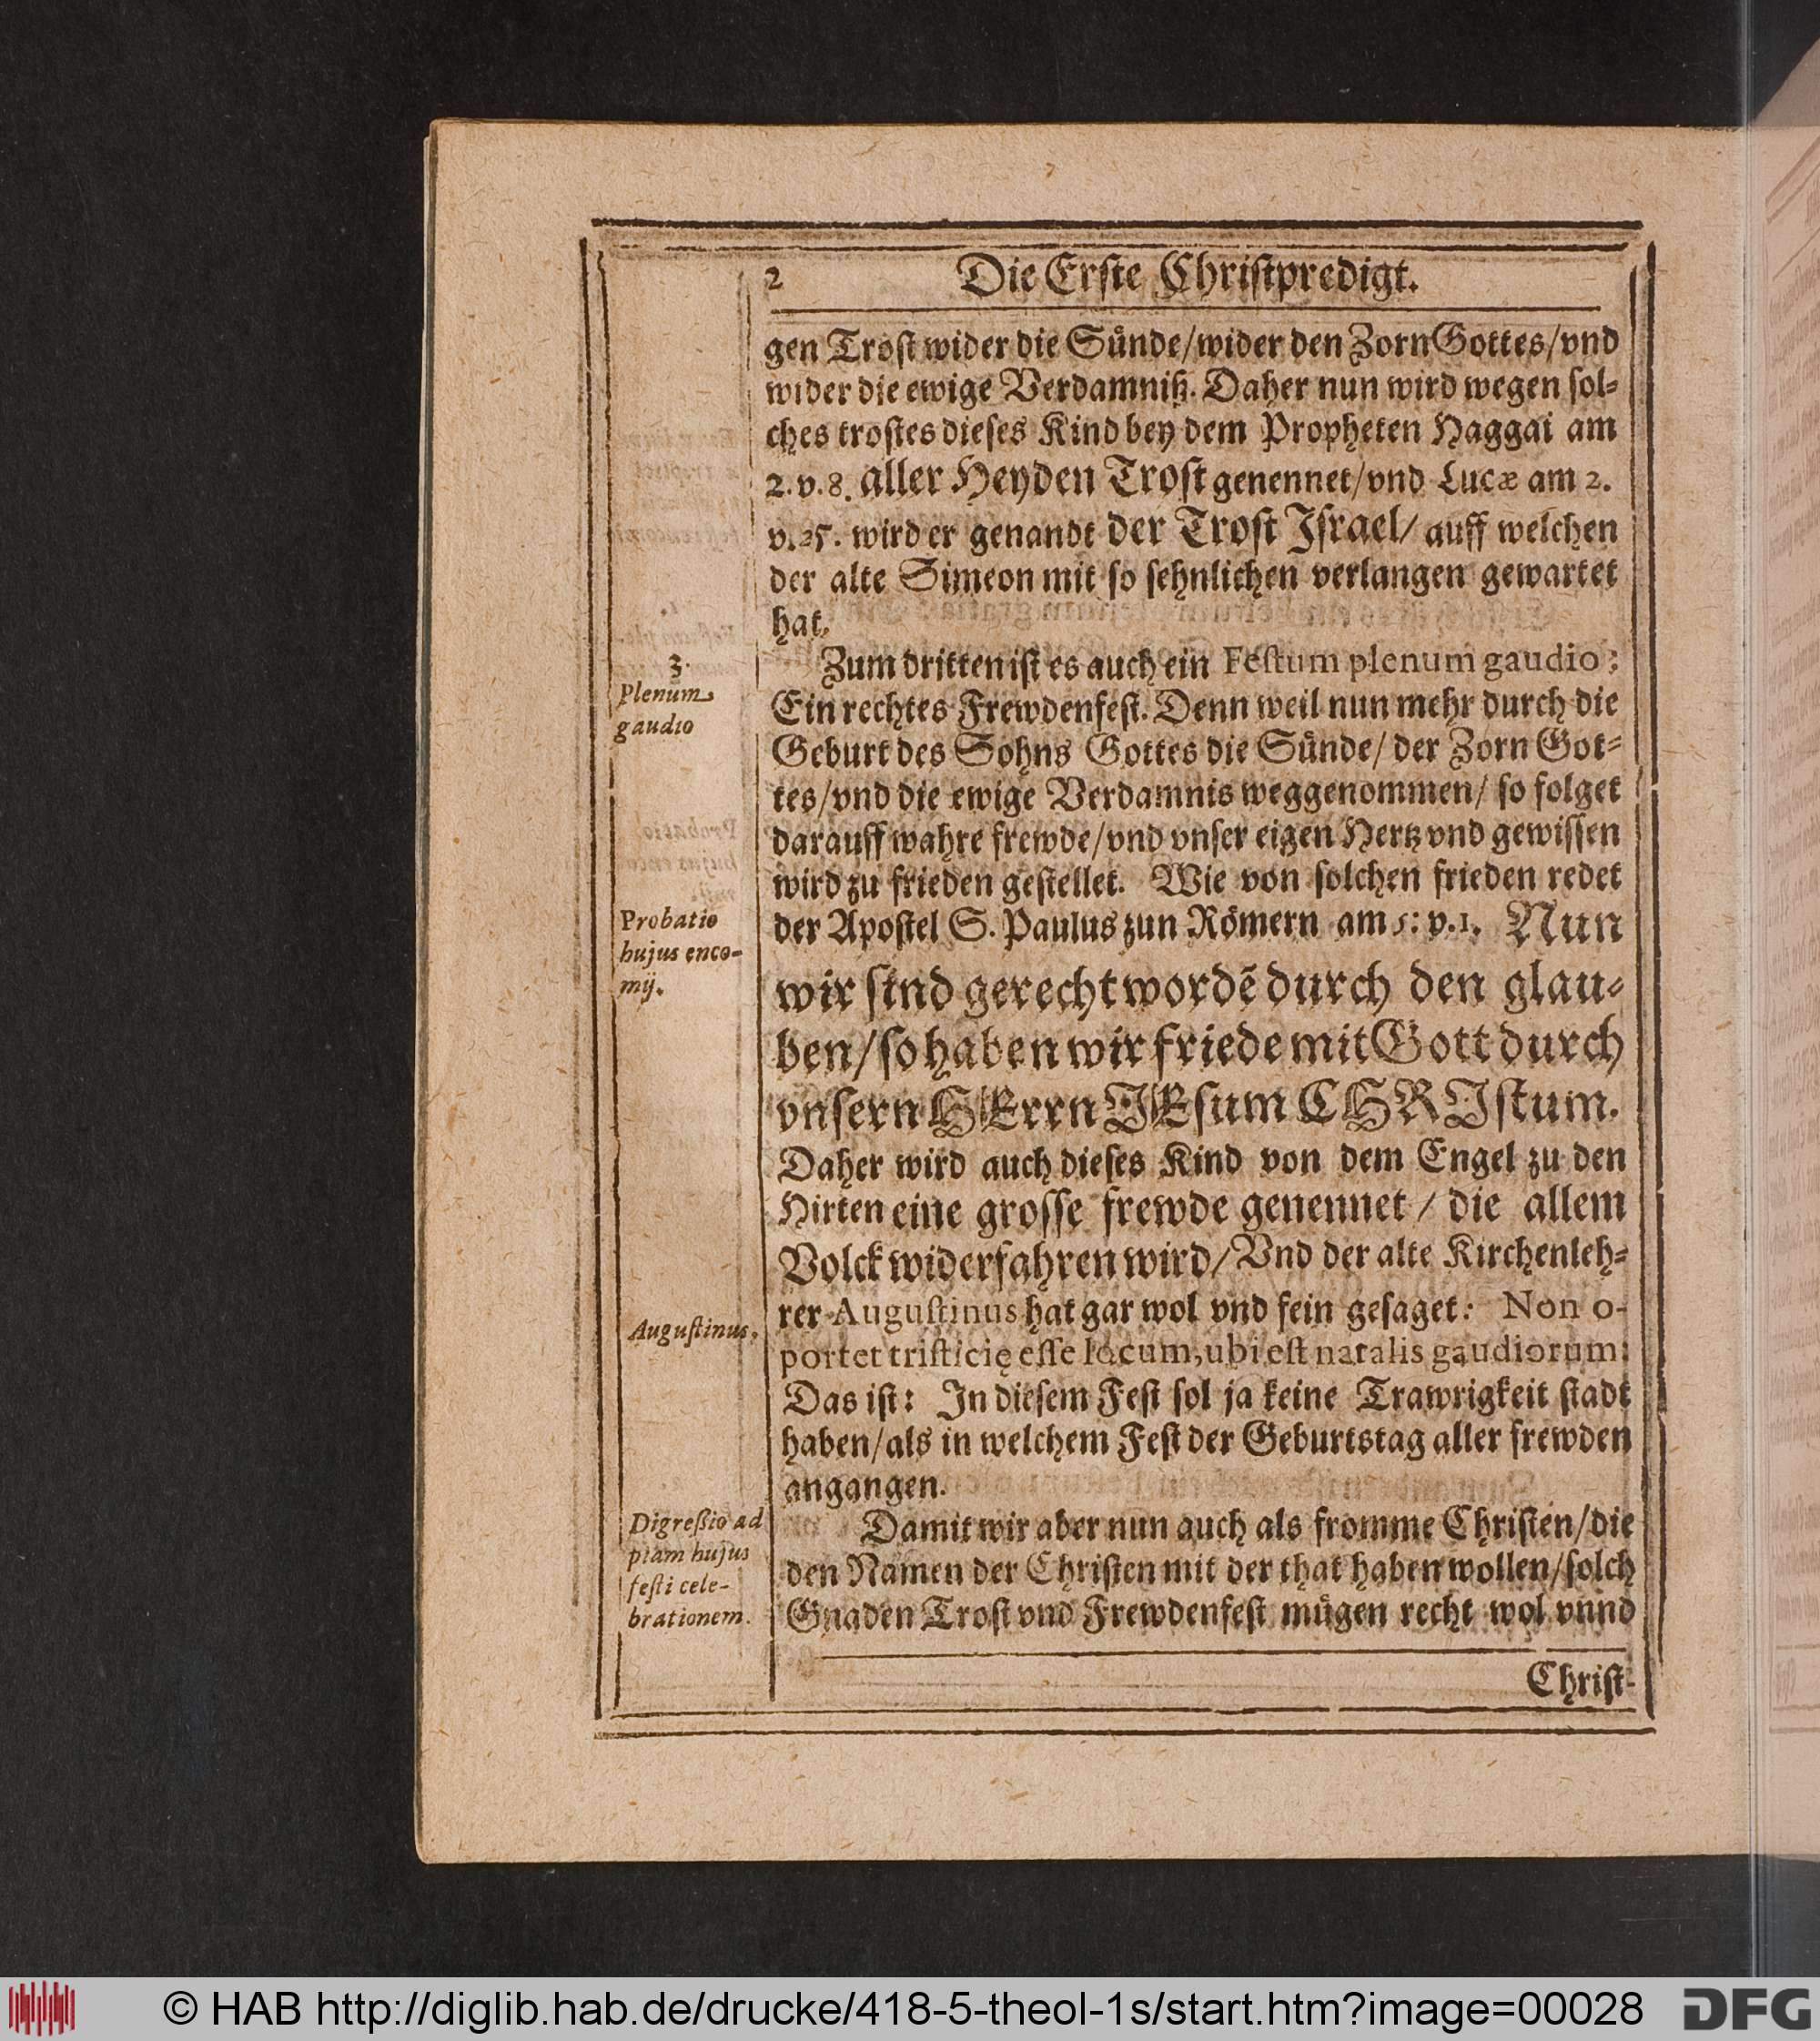 2 Die Erſte Chriſtpredigt.
gen Troſt wider die Sünde/wider den Zorn Gottes/vnd
wider die ewige Verdamniß. Daher nun wird wegen ſol-
ches troſtes dieſes Kind bey dem Propheten Haggai am
2. v. 8. aller Heyden Troſt genennet/vnd Lucæ am 2.
v. 25. wird er genandt der Troſt Iſrael/ auff welchen
der alte Simeon mit ſo ſehnlichen verlangen gewartet
hat.
3.
Plenum
gaudio
Zum dritten iſt es auch ein Feſtum plenum gaudio;
Ein rechtes Frewdenfeſt. Denn weil nun mehr durch die
Geburt des Sohns Gottes die Sünde/ der Zorn Got-
tes/vnd die ewige Verdamnis weggenommen/ ſo folget
darauff wahre frewde/vnd vnſer eigen Hertz vnd gewiſſen
wird zu frieden geſtellet. Wie von ſolchen frieden redet
Probatio
hujus enco-
mij.
der Apoſtel S. Paulus zun Römern am 5: v. 1. Nun
wir ſind gerecht wordẽ durch den glau-
ben/ ſo haben wir friede mit Gott durch
vnſern HErrn JEſum CHRIſtum.
Daher wird auch dieſes Kind von dem Engel zu den
Hirten eine groſſe frewde genennet / die allem
Volck widerfahren wird/ Vnd der alte Kirchenleh-
Auguſtinus.
rer Auguſtinus hat gar wol vnd fein geſaget: Non o-
portet triſticię eſſe locum, ubi eſt natalis gaudiorum:
Das iſt: In dieſem Feſt ſol ja keine Trawrigkeit ſtadt
haben/als in welchem Feſt der Geburtstag aller frewden
angangen.
Digreßio ad
piam hujus
feſti cele-
brationem.
Damit wir aber nun auch als fromme Chriſten/die
den Namen der Chriſten mit der that haben wollen/ſolch
Gnaden Troſt vnd Frewdenfeſt mügen recht wol vnnd
Chriſt-
© HAB http://diglib.hab.de/drucke/418-5-theol-1s/start.htm?image=00028
DFG